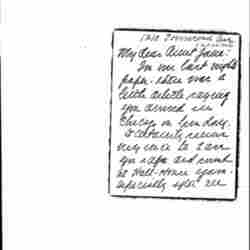 My dear Aunt Jane:
In our last night's
paper there was a
little article saying
you arrived in
Chicago on Sunday.
It certainly
to have
you safe and sound
at Hull-House again
especially after